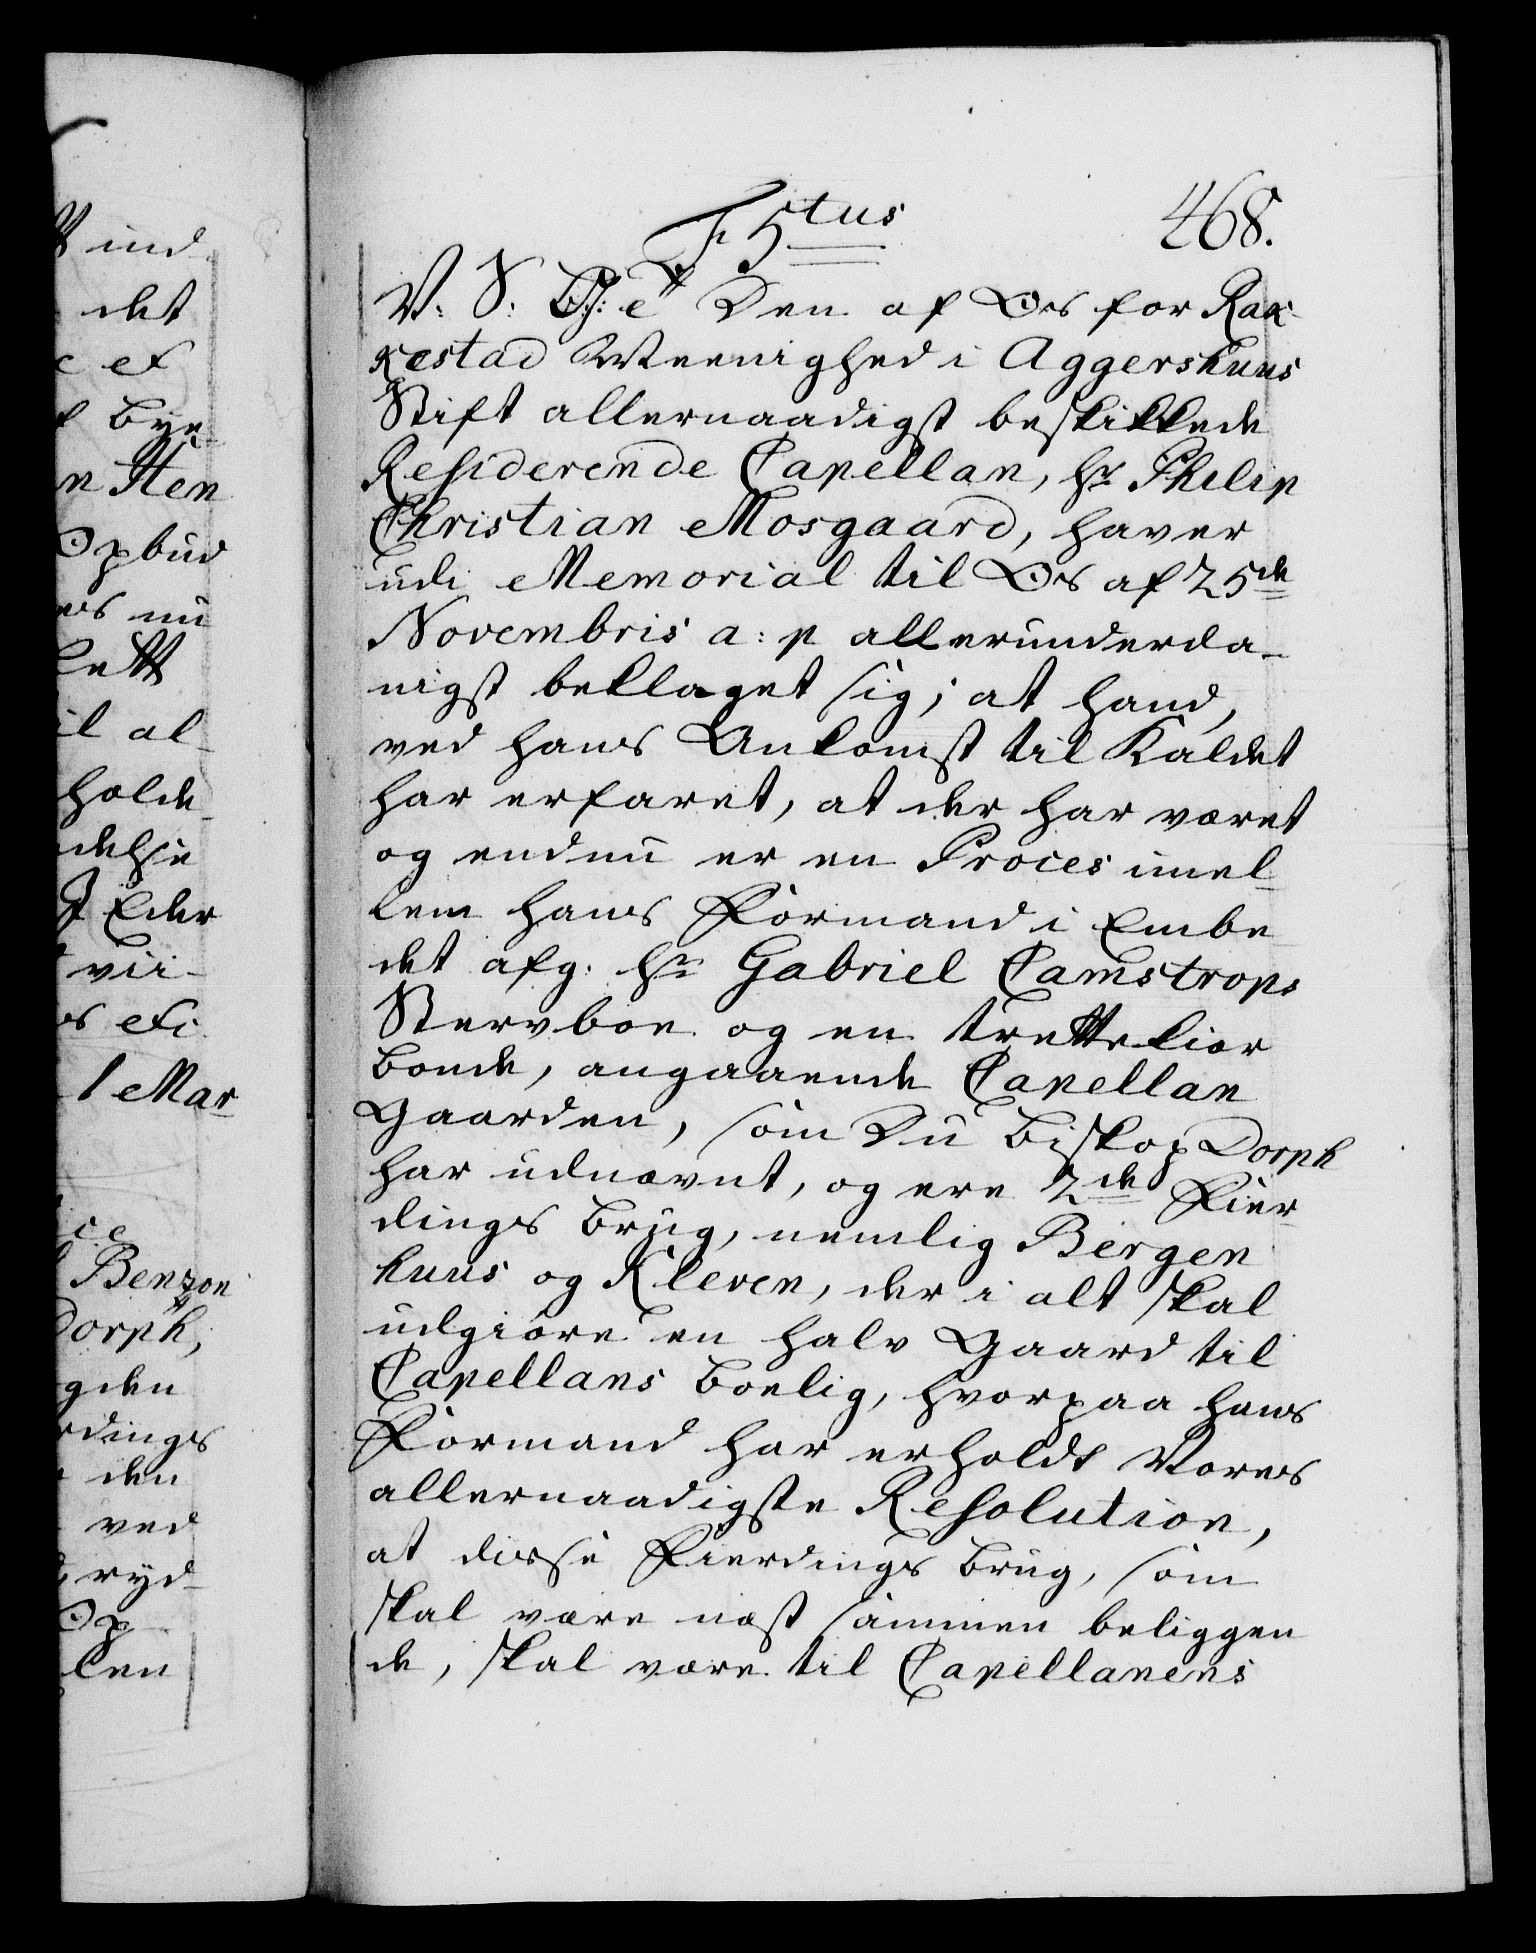 F 5tus
468.
V: S: G: e Den af Os for Rak
kestad Meenighed i Aggershuus
Stift allernaadigst beskikkede
Residerende Capellan, Hr Philip
Christian Mosgaard, haver
udi Memorial til Os af 25de
Novembris a: p allerunderda-
nigst beklaget sig; at hand,
ved hans Ankomst til Kaldet
har erfaret, at der har været
og endnu er en Proces imel-
lem hans Formand i Embe
det afg: Hr Gabriel Camstrops
Stervboe og en trettekiær
Bonde, angaaende Capellan
Gaarden, som Du Biskop Dorph
har udnævnt, og ere 2de Fier-
dings Brug, nemlig Bergen
huus og Kleven, der i alt skal
udgiøre en halv Gaard til
Capellans Boelig, hvorpaa hans
Formand har erholdt Vores
allernaadigste Resolution,
at disse Fierdings Brug, som
skal være næst sammen beliggen
de, skal være til Capellanens
ind-
det
et
Bye-
n Hen
Opbud
nu
lett
il al-
holde-
delse
Eder
vii-
Mar
Benzon
Dorph,
gden
rdings
den
ved
ryd-
Op
len